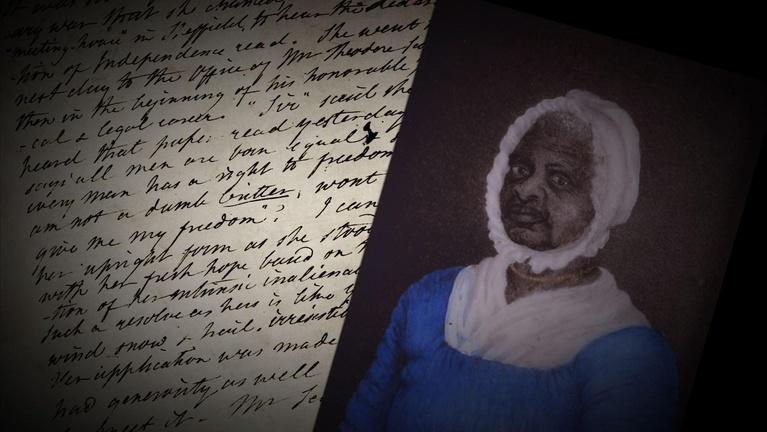 ary was that she chanced
"meeting-house" in Sheffield, to hear the
-tion of Independence read. She went
next day to the office of Mr Theodore
then in the beginning of his honorable
-cal & legal career. "Sir" said she
heard that paper read yesterday
says "all men are born equal
every man has a right to freedom
am not a dumb critter, wont
give me my freedom"? I can
her upright form as she stood
with her fresh hope based on
-tion of her intrinsic inaliena
Such a resolve as hers is like
wind snow & hail. irresisti
Her application was made
had generosity as well
it. Mr